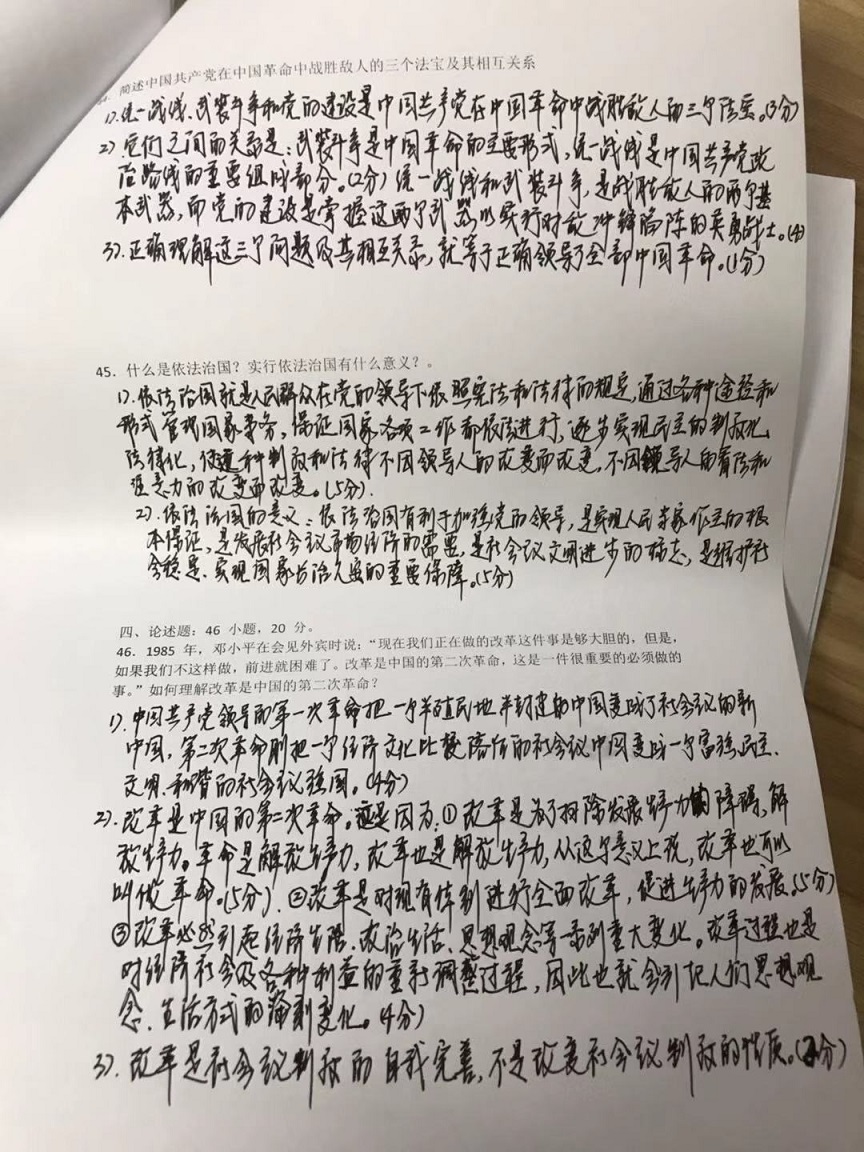 44. 简述中国共产党在中国革命中战胜敌人的三个法宝及其相互关系
1). 统一战线、武装斗争和党的建设是中国共产党在中国革命中战胜敌人的三个法宝。(3分)
2) 它们之间的关系是：武装斗争是中国革命的主要形式，统一战线是中国共产党政
治路线的重要组成部分。(2分) 统一战线和武装斗争，是战胜敌人的两个基
本武器，而党的建设是掌握这两个武器以实行对敌冲锋陷阵的英勇战士。(4
3). 正确理解这三个问题及其相互关系，就等于正确领导了全部中国革命。(1分)
45. 什么是依法治国？实行依法治国有什么意义？。
1). 依法治国就是人民群众在党的领导下依照宪法和法律的规定，通过各种途径和
形式管理国家事务，保证国家各项工作都依法进行，逐步实现民主的制度化、
法律化，使这种制度和法律不因领导人的改变而改变，不因领导人的看法和
注意力的改变而改变。(5分).
2). 依法治国的意义：依法治国有利于加强党的领导，是实现人民当家作主的根
本保证，是发展社会主义市场经济的需要，是社会主义文明进步的标志，是维护社
会稳定、实现国家长治久安的重要保障。(5分)
四、论述题：46 小题，20 分。
46. 1985 年，邓小平在会见外宾时说：“现在我们正在做的改革这件事是够大胆的，但是，
如果我们不这样做，前进就困难了。改革是中国的第二次革命，这是一件很重要的必须做的
事。”如何理解改革是中国的第二次革命？
1). 中国共产党领导的第一次革命把一个半殖民地半封建的中国变成了社会主义的新
中国，第二次革命则把一个经济文化比较落后的社会主义中国变成一个富强、民主、
文明、和谐的社会主义强国。(4分)
2). 改革是中国的第二次革命。这是因为：① 改革是为了扫除发展生产力的障碍，解
放生产力。革命是解放生产力，改革也是解放生产力，从这个意义上说，改革也可以
叫做革命。(5分). ②改革是对现有体制进行全面改革，促进生产力的发展。(5分)
③改革必然引起经济生活、政治生活、思想观念等一系列重大变化。改革过程也是
对经济社会及各种利益的重新调整过程，因此也就会引起人们思想观
念、生活方式的深刻变化。(4分)
3). 改革是社会主义制度的自我完善，不是改变社会主义制度的性质。(2分)